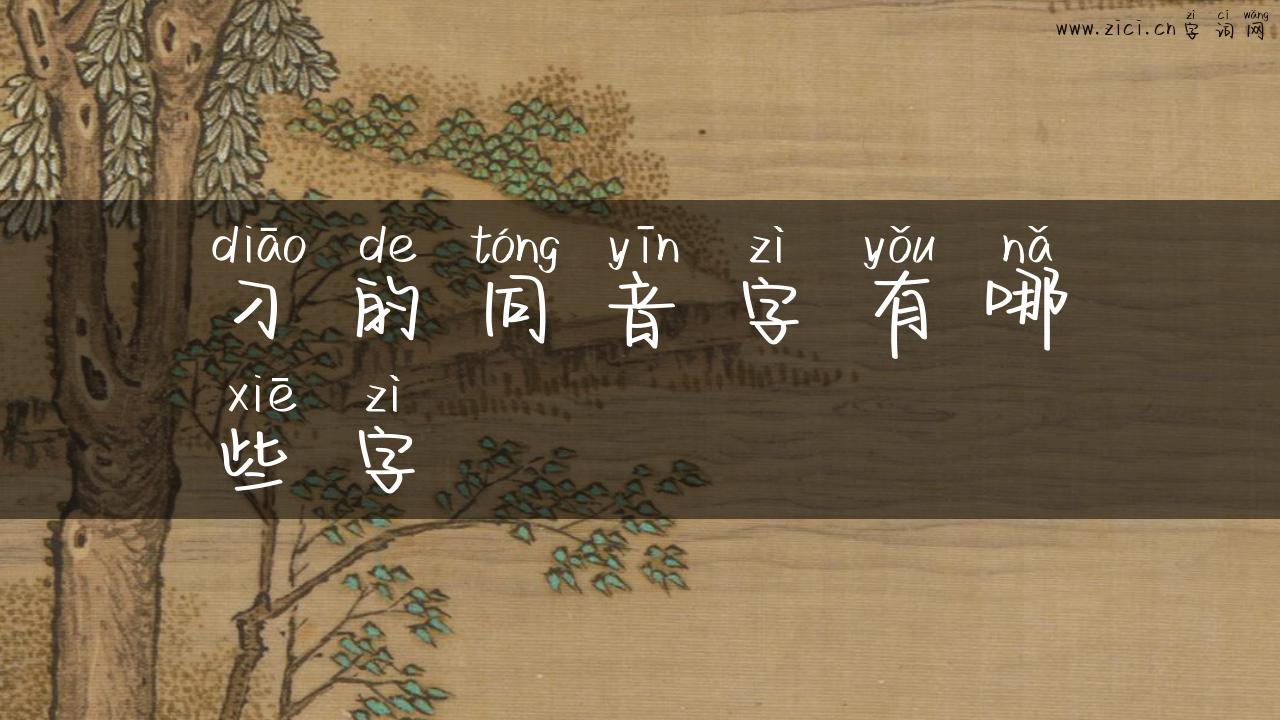 zì cí wǎng
www.zici.cn 字词网
diāo de tóng yīn zì yǒu nǎ
刁的同音字有哪
xiē zì
些字